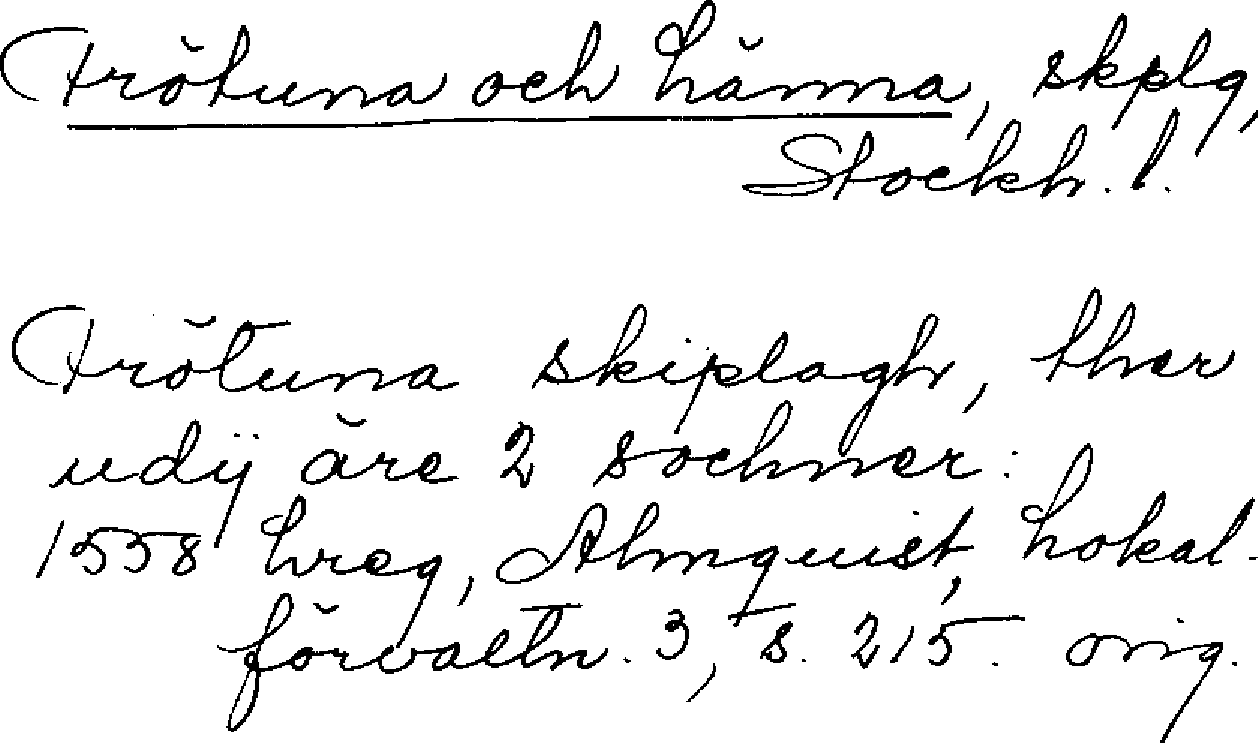 Frötuna och Länna, skplg,
Stockh. l.
Frötuna skiplagh, ther
udij äre 2 sochner:
1558 Lreg, Almquist, Lokal-
förvaltn. 3, s. 215. orig.